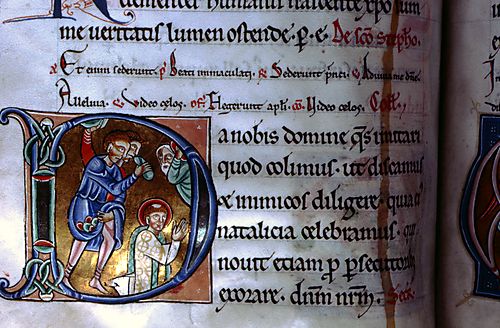 me veritatis lumen ostende. p. e. De sco stepho.
Et enim sederunt. p. Beati immaculati. Sederunt
Alleluia. Video celos. of. Elegerunt apli. co. Video celos. Coll.
Da nobis domine qs imitari
quod colimus. ut discamus
et inimicos diligere. quia
natalicia celebramus. qui
novit etiam p persecutorib
exorare. dnm nrm.